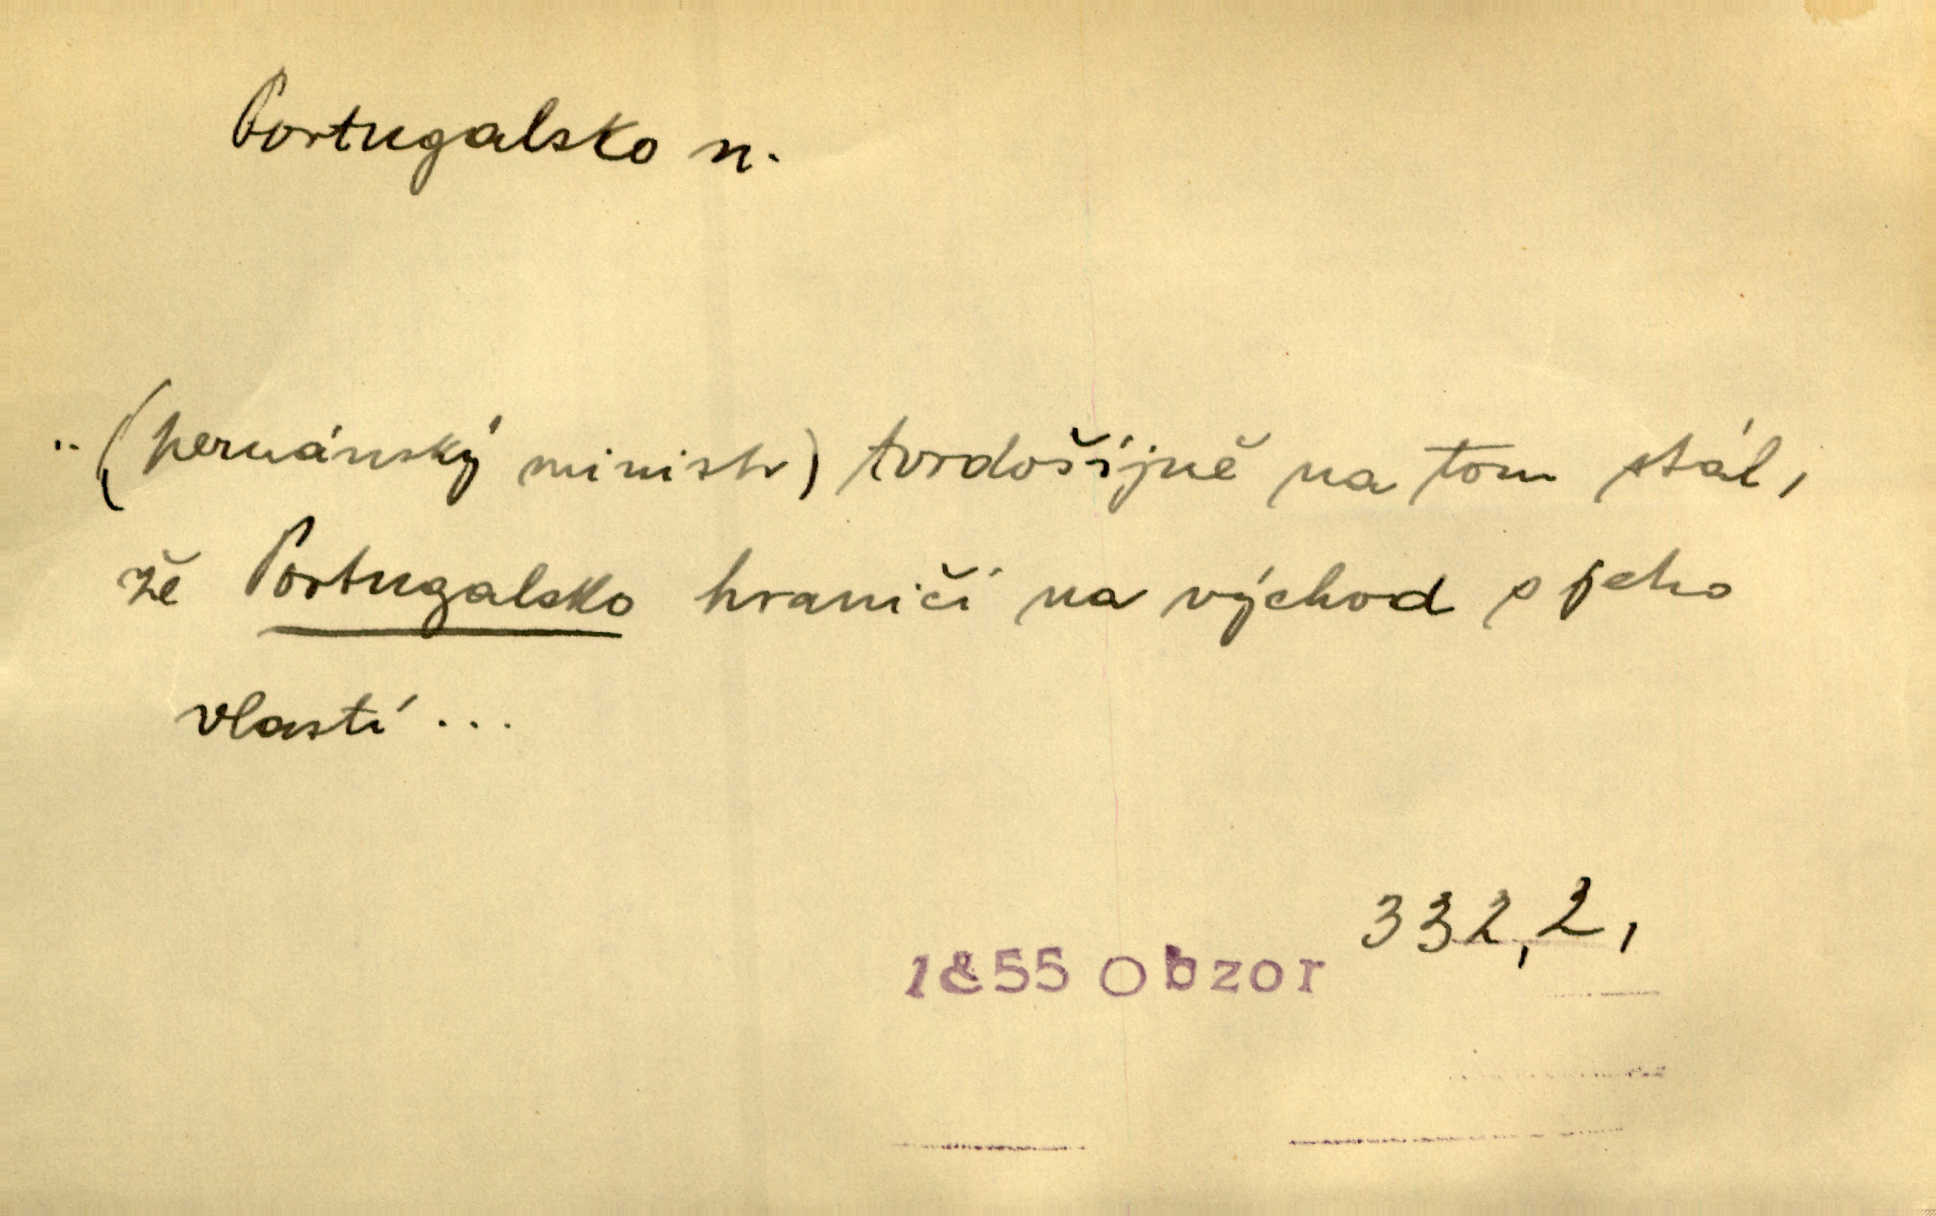 Portugalsko n.
.. (peruánský ministr) tvrdošíjně na tom stál,
že Portugalsko hraničí na východ s jeho
vlastí ...
332, 2,
1855 Obzor